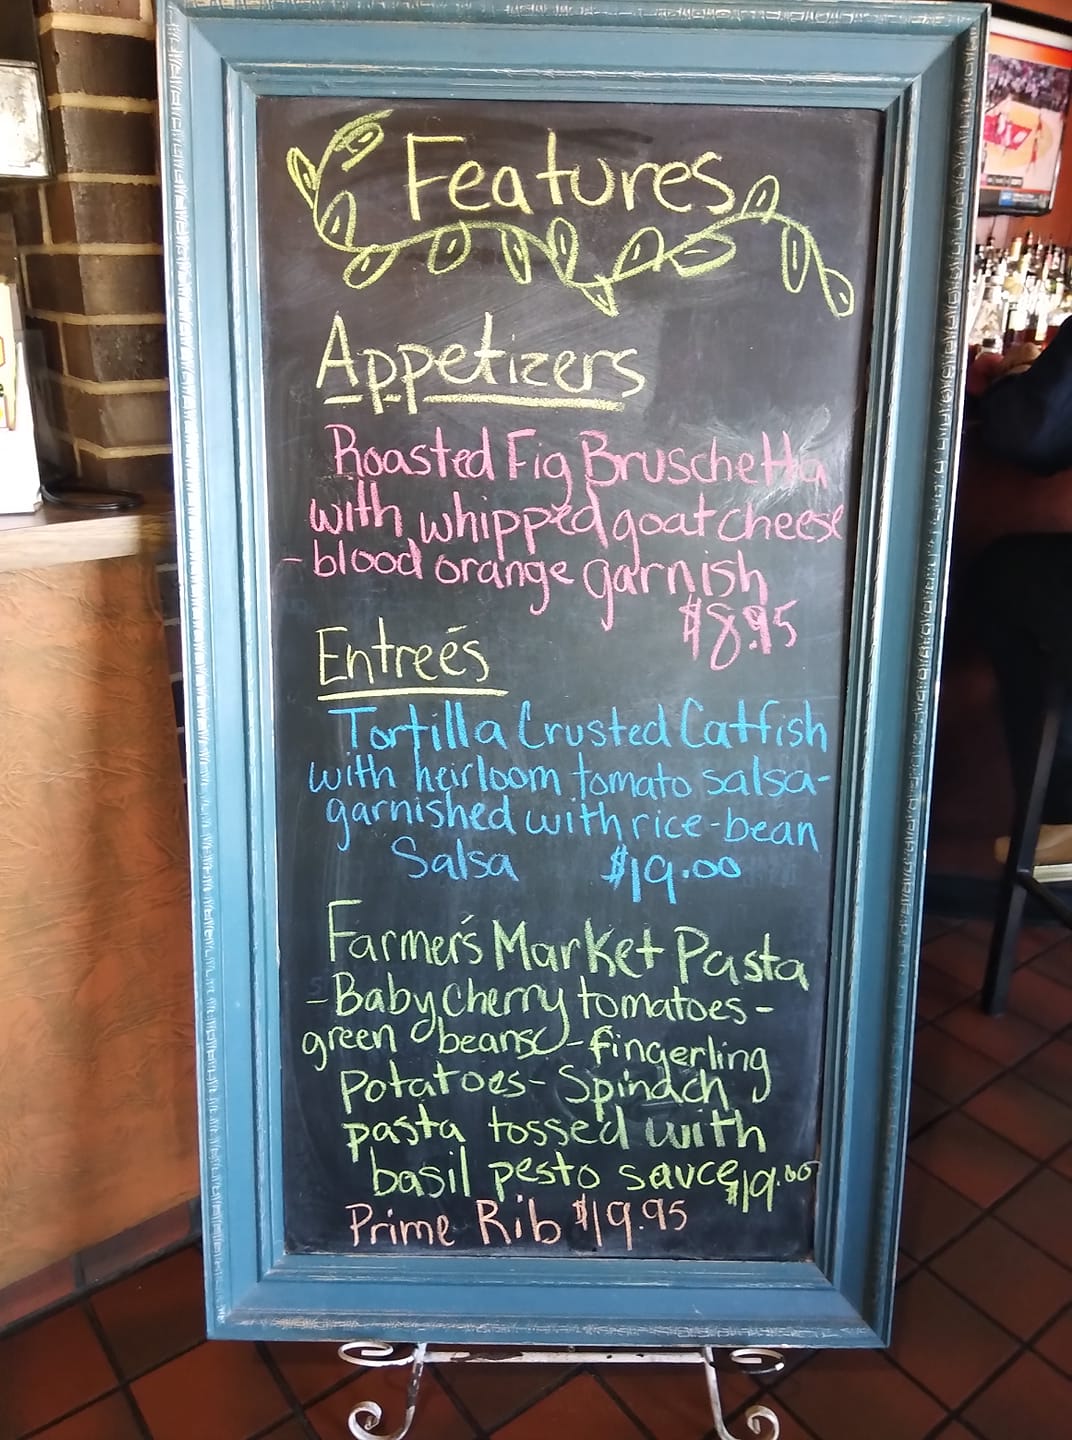 Features
Appetizers
Roasted Fig Bruschetta
with whipped goat cheese
- blood orange garnish
$8.95
Entreés
Tortilla Crusted Catfish
with heirloom tomato salsa-
garnished with rice-bean
Salsa $19.00
Farmer's Market Pasta
- Baby Cherry tomatoes -
green beans - fingerling
potatoes - Spinach
pasta tossed with
basil pesto sauce $19.00
Prime Rib $19.95